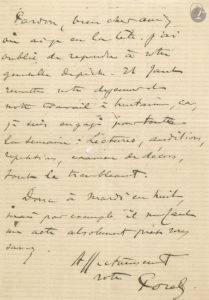 Pardon, bien cher ami,
où ai-je eu la tête. j'ai
oublié de répondre à votre
gentille dépêche. Il faut
remettre notre déjeuner et
notre travail à huitaine, car
je suis engagé pour toute
la semaine : Lectures, auditions,
répétitions, examen de décors,
toute le tremblement.
Donc à mardi en huit,
mais par exemple il me faut
un acte absolument
Affectueusement
votre Porel